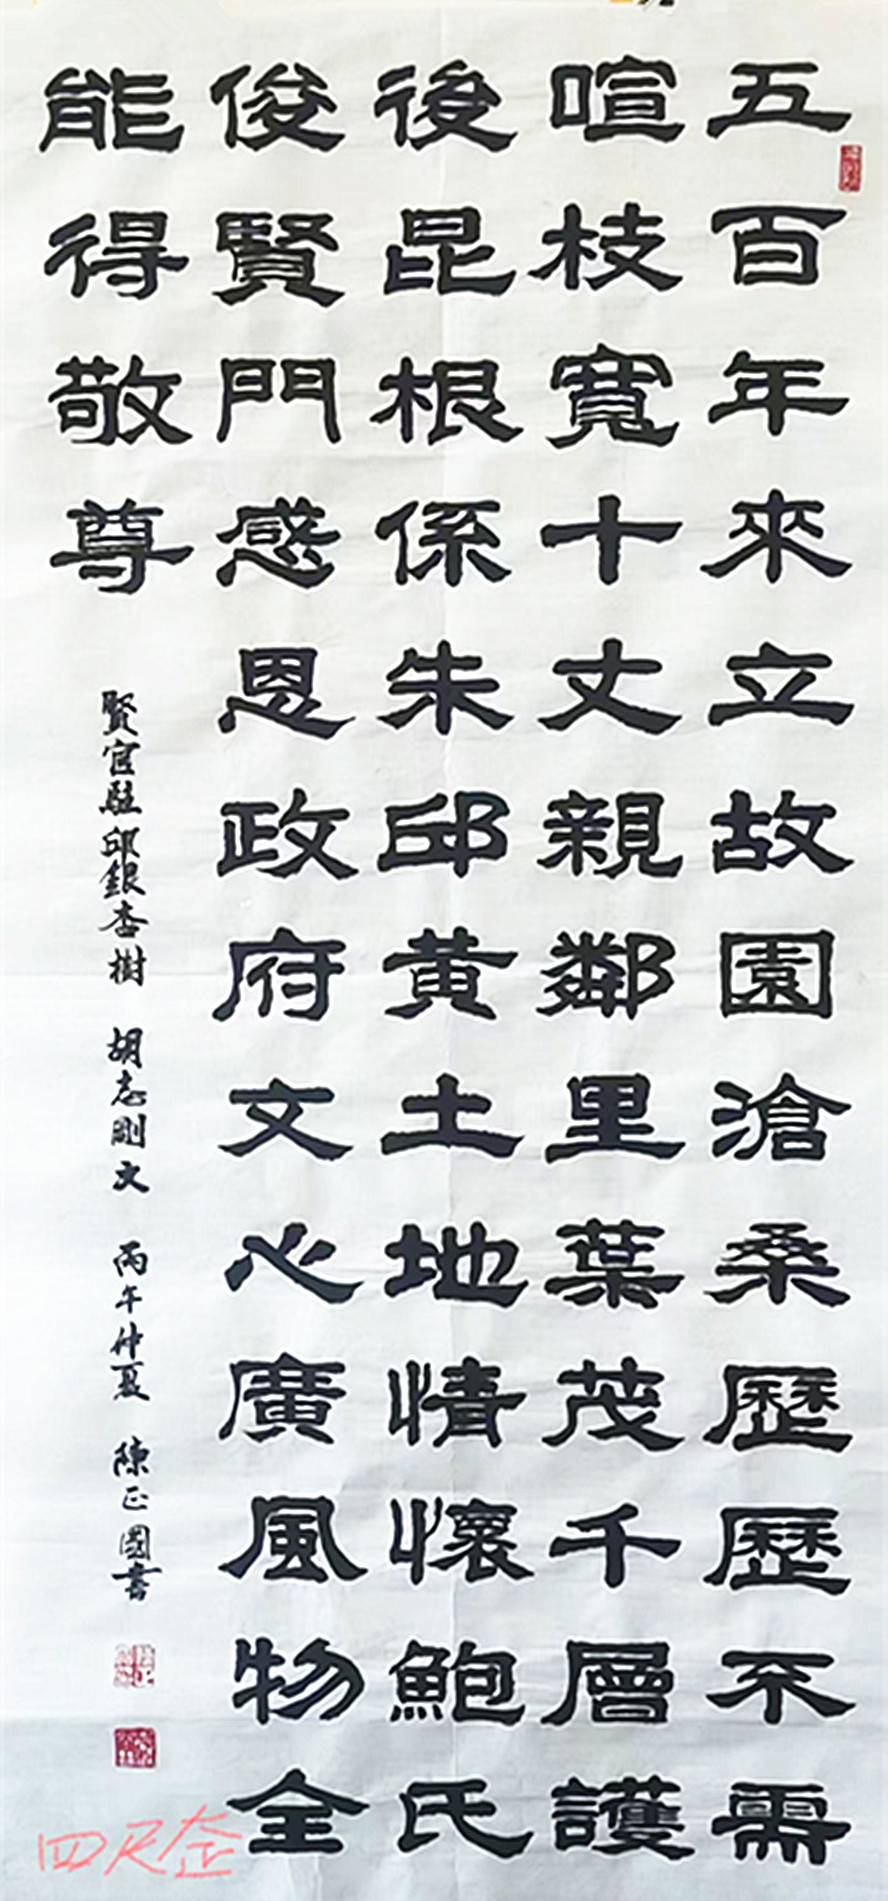 五百年來立故園滄桑歷歷不需
喧枝寬十丈親鄰里葉茂千層護
後昆根係朱邱黃土地情懷鮑氏
俊賢門感恩政府文心廣風物全
能得敬尊
賢官駐邱銀杏樹 胡志剛文 丙午仲夏 陳正國書
四尺企